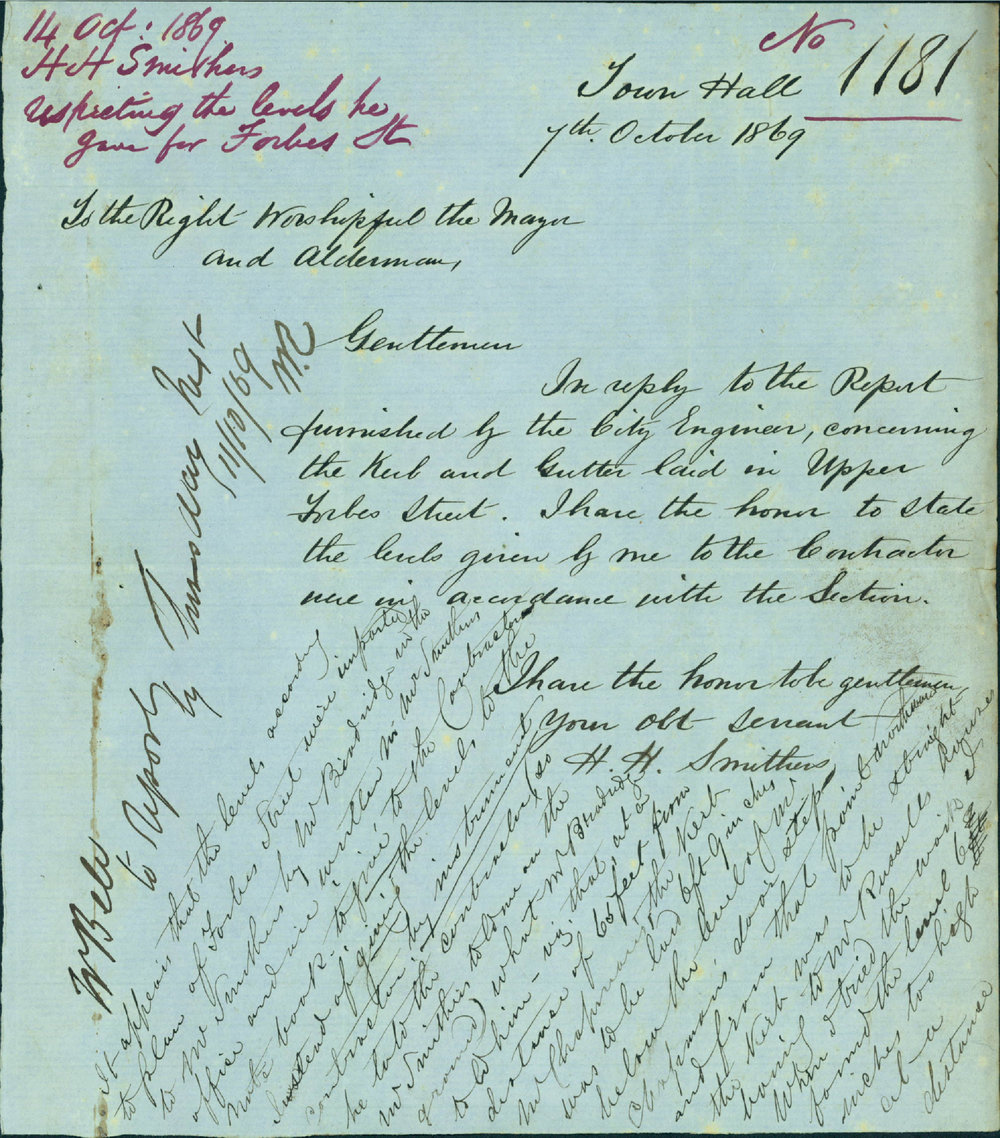 14 Oct: 1869
H H Smithers
respecting the levels he
gave for Forbes St
No 1181
Town Hall
7th. October 1869
To the Right Worshipful the Mayor
and Alderman,
Gentlemen
In reply to the Report
furnished by the City Engineer, concerning
the Kerb and Gutter laid in Upper
Forbes Street. I have the honor to state
the levels given by me to the Contractor
were in accordance with the Section.
I have the honor to be gentlemen
Your obt servant
H. H. Smithers
Mr Bell
to report
by Thursday next
11/10/69
It appears that the levels according
to plan of Forbes Street were imparted
to Mr Smithers by Mr Bradridge in the
office and were written in Mr Smithers
note book - to give to the Contractor
Instead of giving the levels to the
contractor by instrument
he told the contractor (so
Mr Smithers told me on the
ground) what Mr Bradridge
told him - viz that at a
distance of 65 feet from
Mr Chapman's the Kerb
was to be laid 6ft 9 inches
below the level of Mr
Chapman's door step
and from that point
the Kerb was to be straight
to Mr Russells
When I tried the work I
found the level 6
inches too high
at a
distance